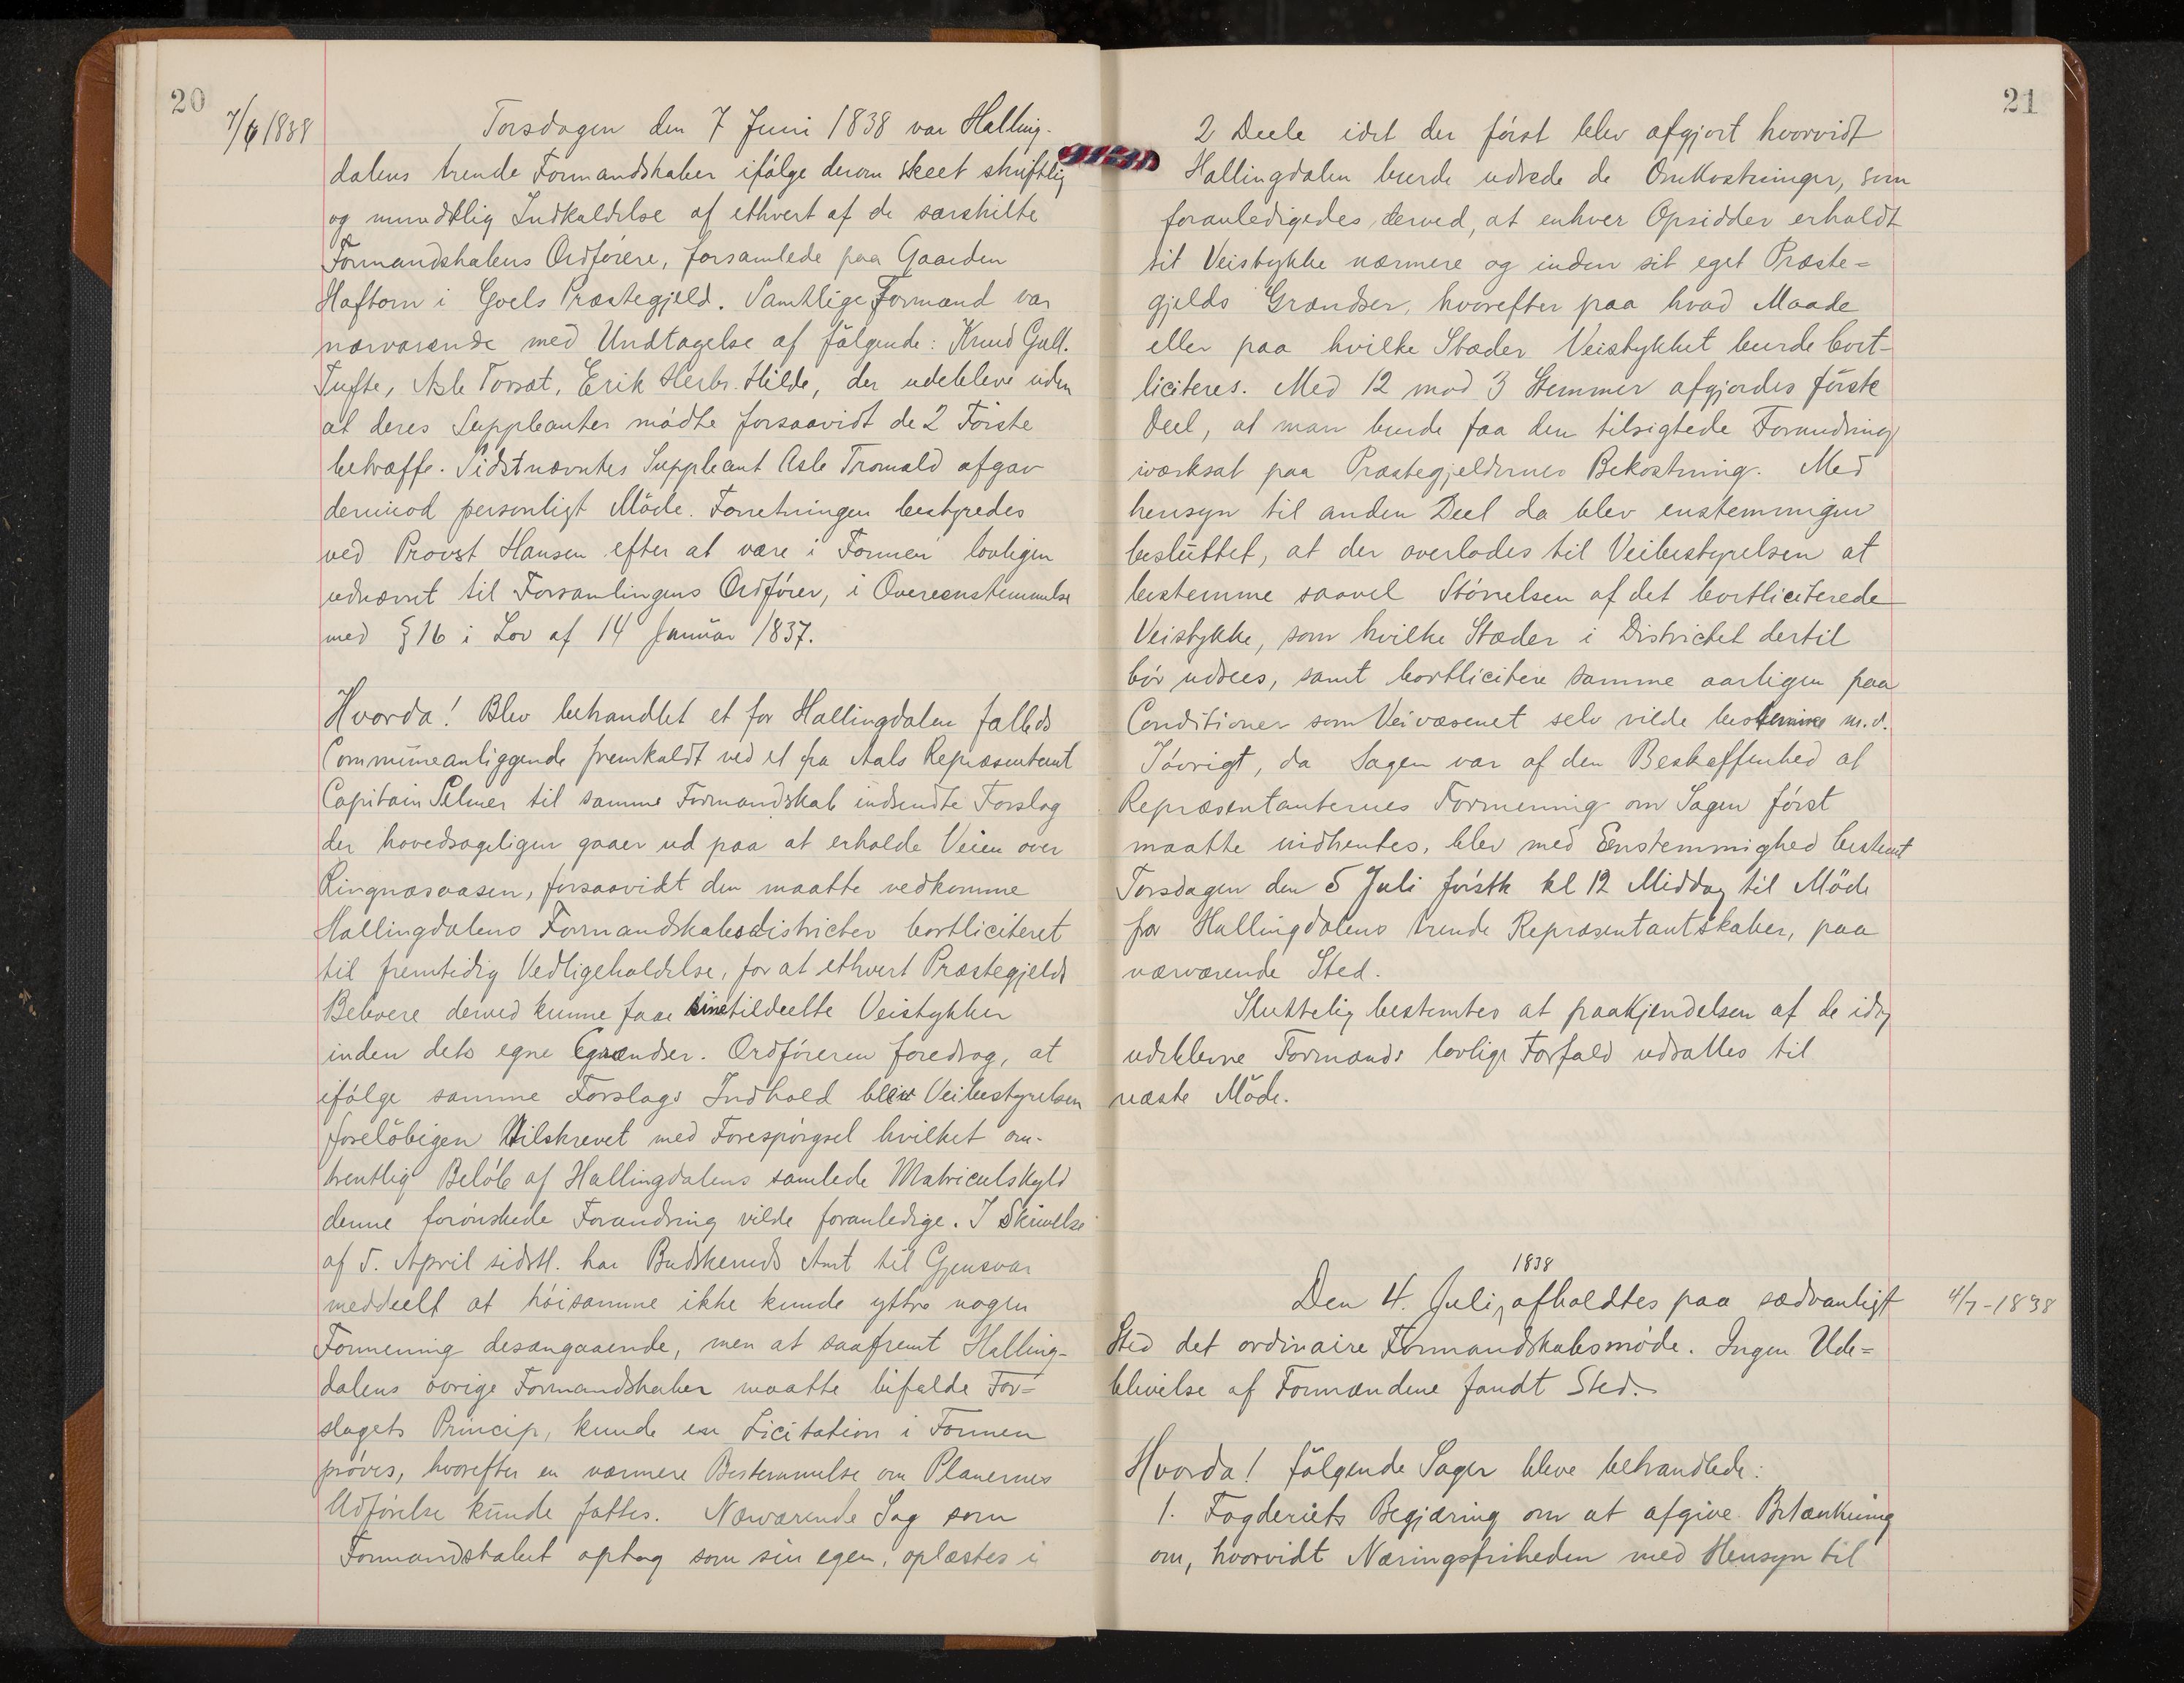 20
7/6 1838
Torsdagen den 7 Juni 1838 var Halling-
dalens trende Formandskaber ifølge derom skeet skriftlig
og mundtlig Indkaldelse af ethvert af de særskilte
Formandskabers Ordførere, forsamlede paa Gaarden
Haftorn i Goels Præstegjeld. Samtlige Formænd var
nærværende med Undtagelse af følgende: Knud Gull.
Tufte, Asle Torsæt, Erik Herbr. Hilde, der udebleve uden
at deres Suppleanter mødte forsaavidt de 2 Første
betræffe. Sidstnævntes Suppleant Asle Tromald afgav
derimod personligt Møde. Forretningen bestyredes
ved Provst Hansen efter at være i Formen lovligen
udnævnt til Forsamlingens Ordfører, i Overeenstemmelse
med § 16 i Lov af 14 Januar 1837.
Hvorda! Blev behandlet et for Hallingdalen fælleds
Communeanliggende fremkaldt ved et fra Aals Repræsentant
Capitain Selmer til samme Formandskab indsendte Forslag
der hovedsageligen gaaer ud paa at erholde Veien over
Ringnæsaasen, forsaavidt den maatte vedkomme
Hallingdalens Formandskabsdistricter bortliciteret
til fremtidig Vedligeholdelse, for at ethvert Præstegjelds
Beboere derved kunne faae sine tildeelte Veistykker
inden dets egne Grændser. Ordføreren foredrog, at
ifølge samme Forslags Indhold blev Veibestyrelsen
foreløbigen tilskrevet med Forespørgsel hvilket om-
trentlig Beløb af Hallingdalens samlede Matriculskyld
denne forønskede Forandring vilde foranledige. I Skrivelse
af 5. April sidstl. har Budskeruds Amt til Gjensvar
meddeelt at høisamme ikke kunde yttre nogen
Formening desangaaende, men at saafremt Halling-
dalens øvrige Formandskaber maatte bifalde For=
slagets Princip, kunde en Licitation i Formen
prøves, hvorefter en nærmere Bestemmelse om Planernes
Udførelse kunde fattes. Nærværende Sag som
Formandskabet optog som sin egen, oplæstes i
21
2 Deele idet der først blev afgjort hvorvidt
Hallingdalen burde udrede de Omkostninger, som
foranledigedes derved, at enhver Opsidder erholdt
sit Veistykke nærmere og inden sit eget Præste=
gjelds Grændser, hvorefter paa hvad Maade
eller paa hvilke Stæder Veistykket burde bort-
liciteres. Med 12 mod 3 Stemmer afgjordes første
Deel, at man burde faa den tilsigtede Forandring
iværksat paa Præstegjeldernes Bekostning. Med
hensyn til anden Deel da blev enstemmigen
besluttet, at der overlodes til Veibestyrelsen at
bestemme saavel Størrelsen af det bortliciterede
Veistykke, som hvilke Stæder i Districtet dertil
bør udsees, samt bortlicitere samme aarligen paa
Conditioner som Veivæsenet selv vilde bestemme m.v.
Iøvrigt, da Sagen var af den Beskaffenhed at
Repræsentanternes Formening om Sagen først
maatte indhentes, blev med Eenstemmighed bestemt
Torsdagen den 5 Juli førstk kl 12 Middag til Møde
for Hallingdalens trende Repræsentantskaber, paa
nærværende Sted.
Sluttelig bestemtes at paakjendelsen af de idag
udeblevne Formænds lovlige Forfald udsattes til
næste Møde.
1838
Den 4. Juli, afholdtes paa sædvanligt
4/7-1838
Sted det ordinaire Formandskabsmøde. Ingen Ude=
blivelse af Formændene fandt Sted.
Hvorda! følgende Sager bleve behandlede:
1. Fogderiets Begjæring om at afgive Betænkning
om, hvorvidt Næringsfriheden med Hensyn til